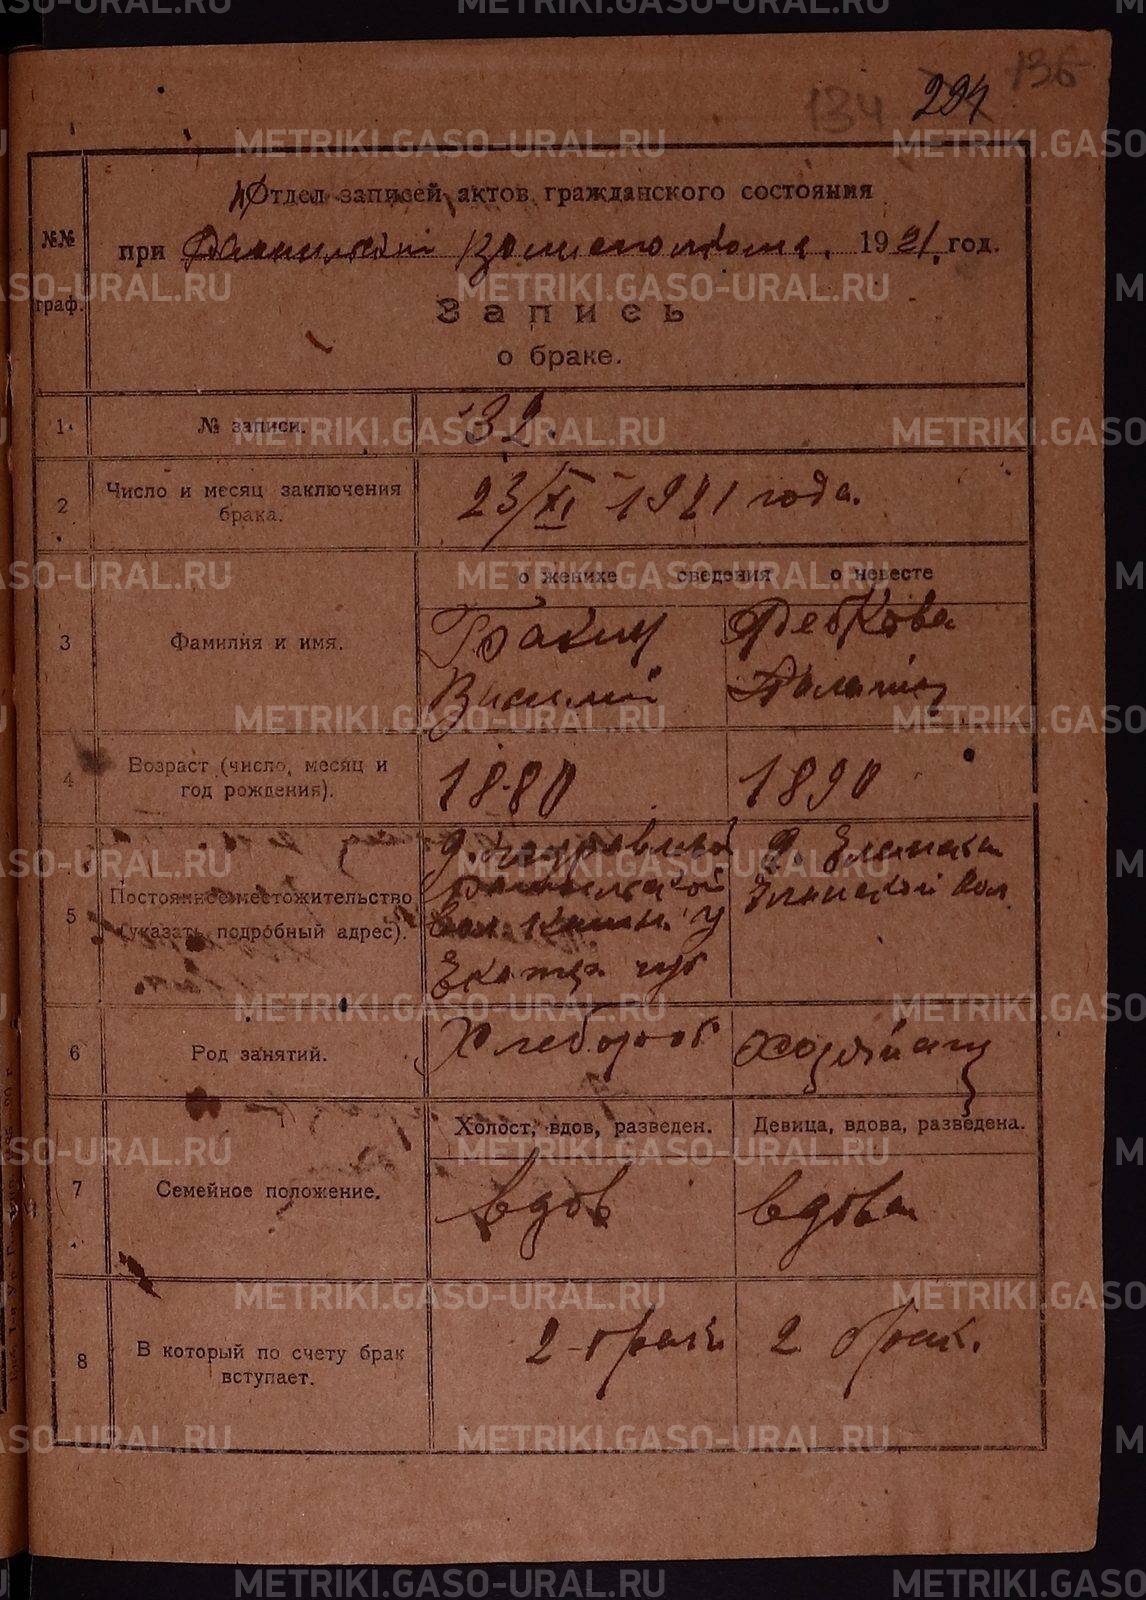 136
134 294
Отдел записей актов гражданского состояния
при 1921 год.
№№
граф.
Запись
о браке.
1. № записи. 32.
2 Число и месяц заключения
брака.
23/XI - 1921 года.
о женихе сведения о невесте
3 Фамилия и имя.
Василий
4 Возраст (число, месяц и
год рождения).
1880 1890
5 Постоянное местожительство
(указать подробный адрес).
д. д. Еланская
Еланской вол
вол. Камы. у
Екатер. губ
6 Род занятий. Хлебороб
Холост, вдов, разведен. Девица, вдова, разведена.
7 Семейное положение. вдов вдова
8 В который по счету брак
вступает.
2 - брак 2 брак.
METRIKI.GASO-URAL.RU